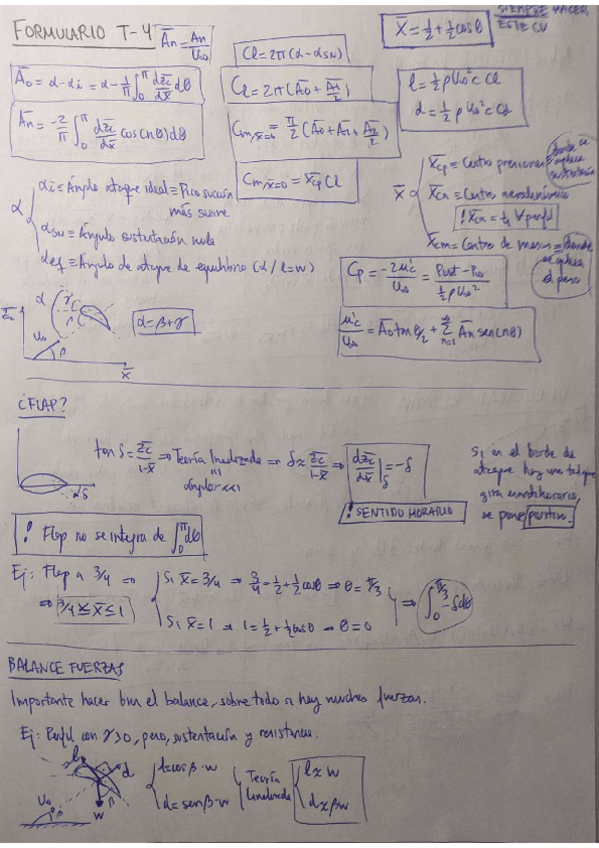 FORMULARIO T-4
Ān = An/U∞
x̄ = ½ + ½cosθ
SIEMPRE HACER
ESTE CV
Cl = 2π(α - αSN)
Ā₀ = α - αi = α - 1/π ∫₀^π dz̄c/dx̄ dθ
Cl = 2π(Ā₀ + Ā₁/2)
l = ½ρU∞²c Cl
d = ½ρU∞²c Cd
Ān = -2/π ∫₀^π dz̄c/dx̄ cos(nθ)dθ
Cm,x̄=0 = π/2 (Ā₀ + Ā₁ + Ā₂/2)
Cm,x̄=0 = x̄cp Cl
α
αi = Ángulo ataque ideal = Pico succión
más suave
αSN = Ángulo sustentación nula
αef = Ángulo de ataque de equilibrio (α / l=w)
x̄
x̄cp = Centro presiones = donde se
aplica
sustentación
x̄ca = Centro aerodinámico
! x̄ca = ¼ ∀ perfil
x̄cm = Centro de masas = donde
se aplica
el peso
Cp = -2u'c/U∞ = Pext - P∞ / ½ρU∞²
u'c/U∞ = Ā₀ tan θ/2 + Σ n=1 ∞ Ān sen(nθ)
z̄c α γ β U∞ β x̄
α = β + γ
¿FLAP?
δ
tan δ = z̄c/1-x̄ ⇒ Teoría Linealizada ⇒ δ ≈ z̄c/1-x̄ ⇒ dz̄c/dx̄|δ = -δ
ángulos <<1
! SENTIDO HORARIO
Si en el borde de
ataque hay una
gira antihorario,
se pone positivo.
! Flap no se integra de ∫₀^π dθ
Ej: Flap a 3/4 ⇒
⇒ 3/4 ≤ x̄ ≤ 1
Si x̄ = 3/4 ⇒ 3/4 = ½ + ½cosθ ⇒ θ = π/3
Si x̄ = 1 ⇒ 1 = ½ + ½cosθ ⇒ θ = 0
⇒ ∫₀^π/3 -δdθ
BALANCE FUERZAS
Importante hacer bien el balance, sobre todo si hay muchas fuerzas.
Ej: Perfil con γ>0, peso, sustentación y resistencia.
l d U∞ β W β
l = cosβ·w
d = senβ·w
Teoría
Linealizada
l ≈ w
d ≈ βw